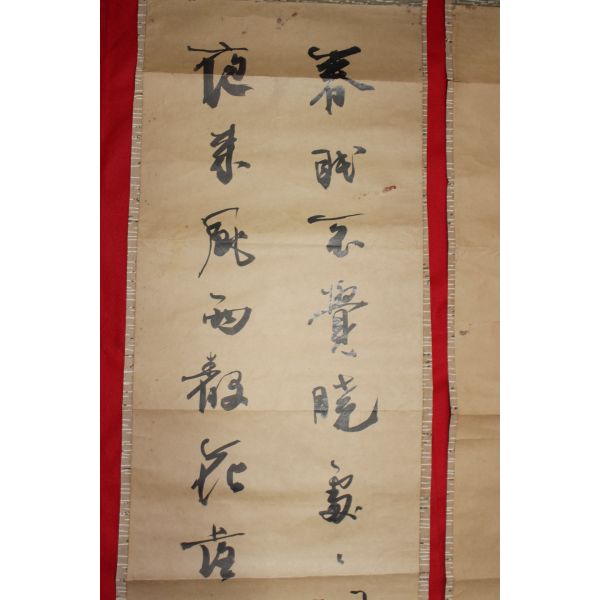 春眠不覺曉處〻
夜来風雨聲花落